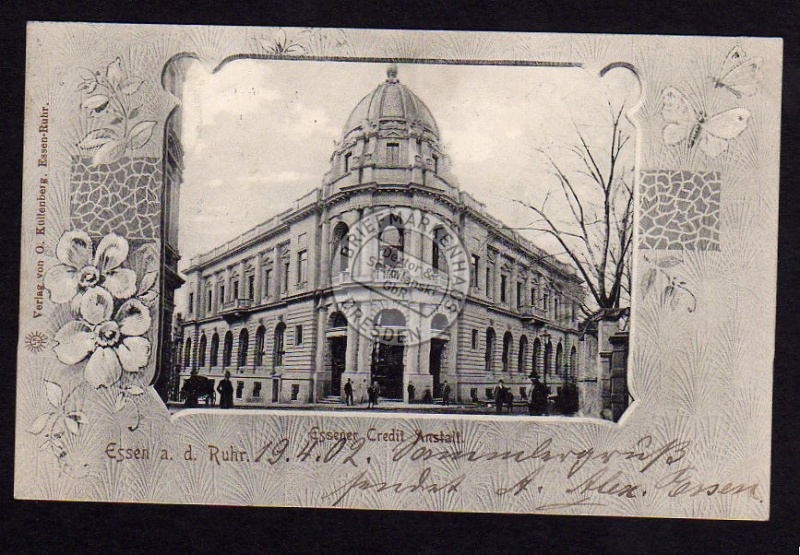 Verlag von O. Küllenberg. Essen-Ruhr.
BRIEFMARKENHAUS
Dextor &
Stromlanski
GbR
DRESDEN
Essener Credit Anstalt.
Essen a. d. Ruhr. 19.4.02. Sammlergruß
sendet A. Alex. Essen